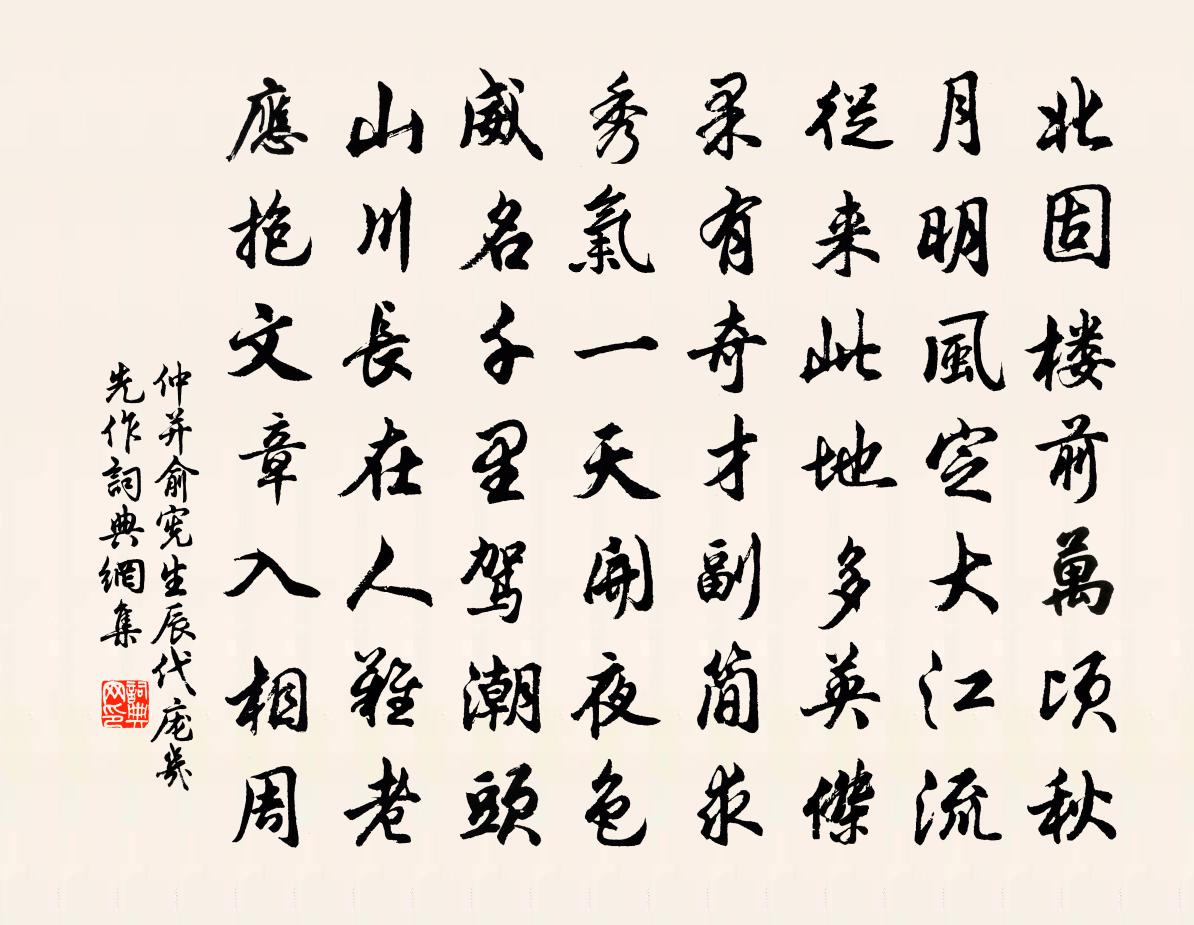 北固楼前萬顷秋
月明風定大江流
從来此地多英傑
果有奇才副简求
秀氣一天開夜色
威名千里驾潮頭
山川長在人難老
應抱文章入相周
仲并俞宪生辰代庞幾
先作詞典網集
詞典网印